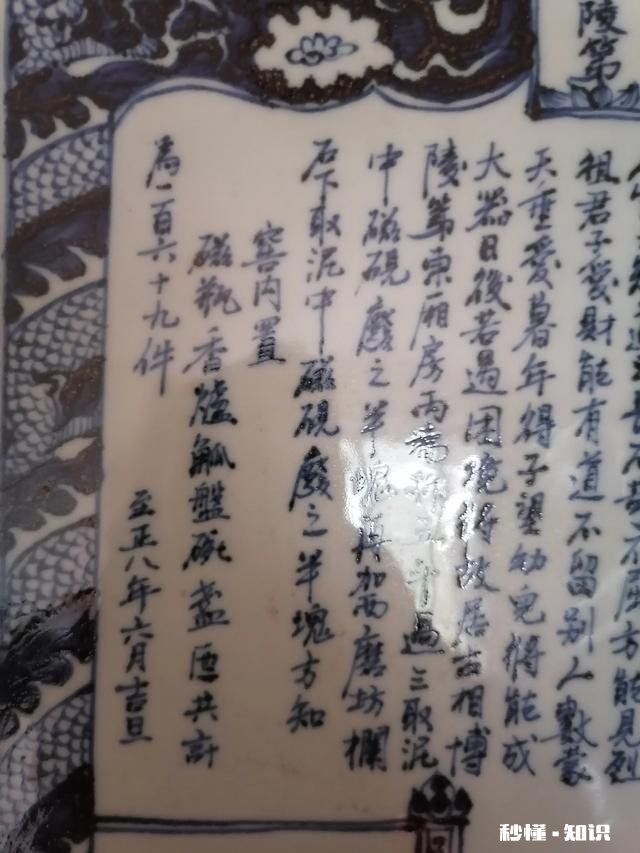 陵第
祖君子愛財能有道不留别人數蒙
天垂愛暮年得子望幼兒將能成
大器日後若遇困境得故居古相博
陵第東厢房兩
過三取泥
中磁硯廢之半塊再加西磨坊欄
石下取泥中磁硯廢之半塊方知
窖内置
磁瓶香爐觚盤碗盞匜共計
為一百六十九件
至正八年六月吉旦
秒懂·知识